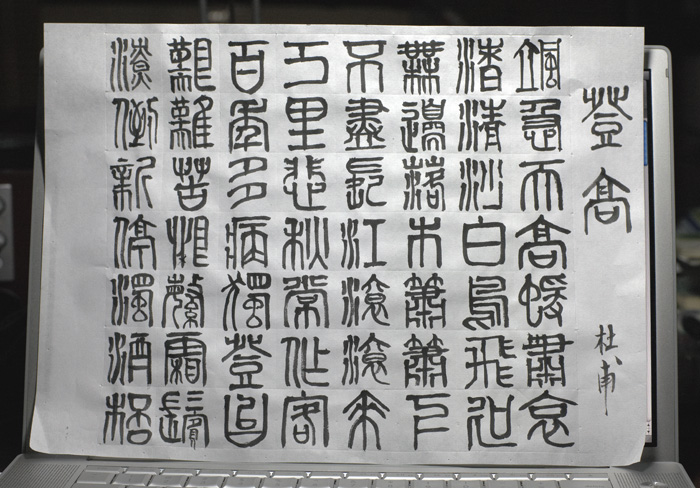 登高
杜甫
風急天高猿嘯哀
渚清沙白鳥飛迴
無邊落木蕭蕭下
不盡長江滾滾來
万里悲秋常作客
百年多病獨登台
艱難苦恨繁霜鬢
潦倒新停濁酒桮